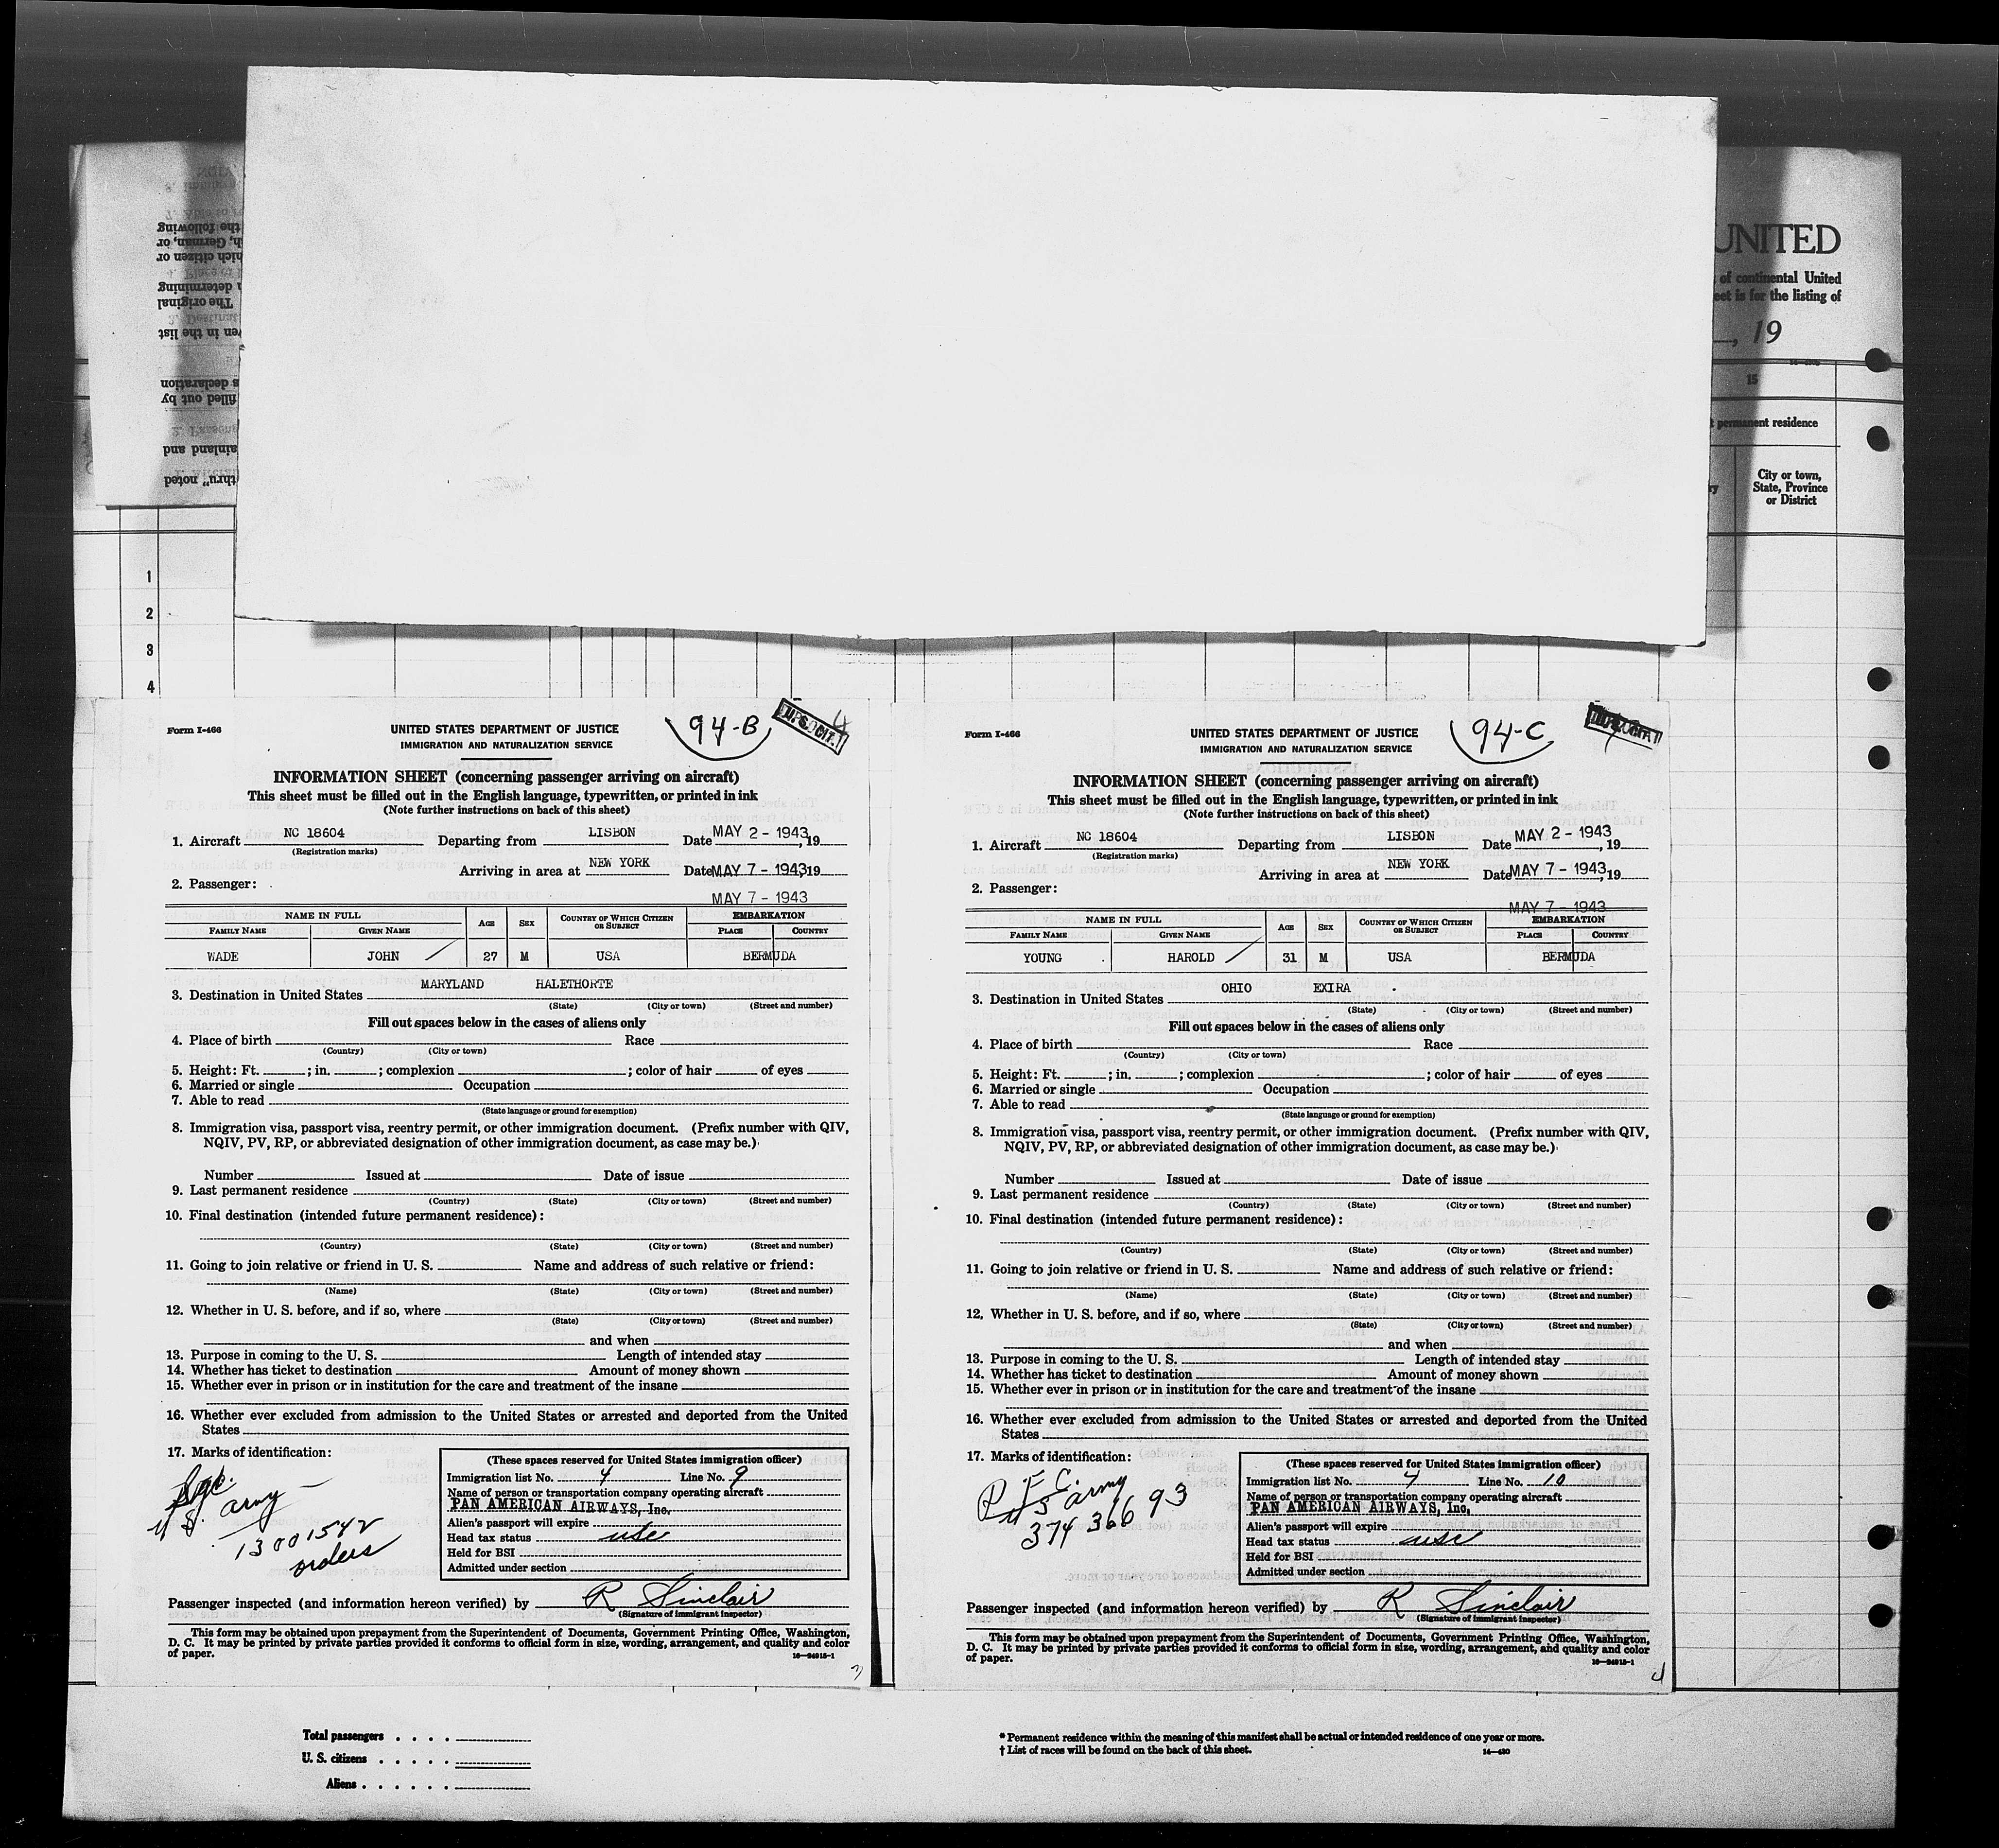 UNITED
of continental United
eet is for the listing of
, 19
15
permanent residence
City or town,
State, Province
or District
thru" noted
ainland and
filled out by
s declaration
en in the list
The original
determining
hich citizen or
h, German, or
the following
1
2
3
4
Form I-466
94-B
U. S. CIT.
UNITED STATES DEPARTMENT OF JUSTICE
IMMIGRATION AND NATURALIZATION SERVICE
INFORMATION SHEET (concerning passenger arriving on aircraft)
This sheet must be filled out in the English language, typewritten, or printed in ink
(Note further instructions on back of this sheet)
1. Aircraft NC 18604 Departing from LISBON Date MAY 2 - 1943, 19
(Registration marks)
Arriving in area at NEW YORK Date MAY 7 - 1943 19
2. Passenger:
MAY 7 - 1943
NAME IN FULL AGE SEX COUNTRY OF WHICH CITIZEN OR SUBJECT EMBARKATION
FAMILY NAME GIVEN NAME PLACE COUNTRY
WADE JOHN 27 M USA BERMUDA
MARYLAND HALETHORTE
3. Destination in United States
(State) (City or town) (Street and number)
Fill out spaces below in the cases of aliens only
4. Place of birth Race
(Country) (City or town)
5. Height: Ft. ; in. ; complexion ; color of hair of eyes
6. Married or single Occupation
7. Able to read
(State language or ground for exemption)
8. Immigration visa, passport visa, reentry permit, or other immigration document. (Prefix number with QIV,
NQIV, PV, RP, or abbreviated designation of other immigration document, as case may be.)
Number Issued at Date of issue
9. Last permanent residence
(Country) (State) (City or town) (Street and number)
10. Final destination (intended future permanent residence):
(Country) (State) (City or town) (Street and number)
11. Going to join relative or friend in U. S. Name and address of such relative or friend:
(Name) (State) (City or town) (Street and number)
12. Whether in U. S. before, and if so, where
(State) (City or town) (Street and number)
and when
13. Purpose in coming to the U. S. Length of intended stay
14. Whether has ticket to destination Amount of money shown
15. Whether ever in prison or in institution for the care and treatment of the insane
16. Whether ever excluded from admission to the United States or arrested and deported from the United
States
17. Marks of identification:
Sgt.
U. S. army
13001542
orders
(These spaces reserved for United States immigration officer)
Immigration list No. 4 Line No. 9
Name of person or transportation company operating aircraft
PAN AMERICAN AIRWAYS, Inc.
Alien's passport will expire
Head tax status usc
Held for BSI
Admitted under section
Passenger inspected (and information hereon verified) by R Sinclair
(Signature of immigrant inspector)
This form may be obtained upon prepayment from the Superintendent of Documents, Government Printing Office, Washington,
D. C. It may be printed by private parties provided it conforms to official form in size, wording, arrangement, and quality and color
of paper.
16—24915-1
3
Form I-466
94-C
UNITED STATES DEPARTMENT OF JUSTICE
IMMIGRATION AND NATURALIZATION SERVICE
INFORMATION SHEET (concerning passenger arriving on aircraft)
This sheet must be filled out in the English language, typewritten, or printed in ink
(Note further instructions on back of this sheet)
1. Aircraft NC 18604 Departing from LISBON Date MAY 2 - 1943, 19
(Registration marks)
Arriving in area at NEW YORK Date MAY 7 - 1943, 19
2. Passenger:
MAY 7 - 1943
NAME IN FULL AGE SEX COUNTRY OF WHICH CITIZEN OR SUBJECT EMBARKATION
FAMILY NAME GIVEN NAME PLACE COUNTRY
YOUNG HAROLD 31 M USA BERMUDA
OHIO EXIRA
3. Destination in United States
(State) (City or town) (Street and number)
Fill out spaces below in the cases of aliens only
4. Place of birth Race
(Country) (City or town)
5. Height: Ft. ; in. ; complexion ; color of hair of eyes
6. Married or single Occupation
7. Able to read
(State language or ground for exemption)
8. Immigration visa, passport visa, reentry permit, or other immigration document. (Prefix number with QIV,
NQIV, PV, RP, or abbreviated designation of other immigration document, as case may be.)
Number Issued at Date of issue
9. Last permanent residence
(Country) (State) (City or town) (Street and number)
10. Final destination (intended future permanent residence):
(Country) (State) (City or town) (Street and number)
11. Going to join relative or friend in U. S. Name and address of such relative or friend:
(Name) (State) (City or town) (Street and number)
12. Whether in U. S. before, and if so, where
(State) (City or town) (Street and number)
and when
13. Purpose in coming to the U. S. Length of intended stay
14. Whether has ticket to destination Amount of money shown
15. Whether ever in prison or in institution for the care and treatment of the insane
16. Whether ever excluded from admission to the United States or arrested and deported from the United
States
17. Marks of identification:
P. F. C.
U S army
374 366 93
(These spaces reserved for United States immigration officer)
Immigration list No. 4 Line No. 10
Name of person or transportation company operating aircraft
PAN AMERICAN AIRWAYS, Inc.
Alien's passport will expire
Head tax status usc
Held for BSI
Admitted under section
Passenger inspected (and information hereon verified) by R Sinclair
(Signature of immigrant inspector)
This form may be obtained upon prepayment from the Superintendent of Documents, Government Printing Office, Washington,
D. C. It may be printed by private parties provided it conforms to official form in size, wording, arrangement, and quality and color
of paper.
16—24915-1
4
Total passengers
U. S. citizens
Aliens
* Permanent residence within the meaning of this manifest shall be actual or intended residence of one year or more.
† List of races will be found on the back of this sheet.
14—430